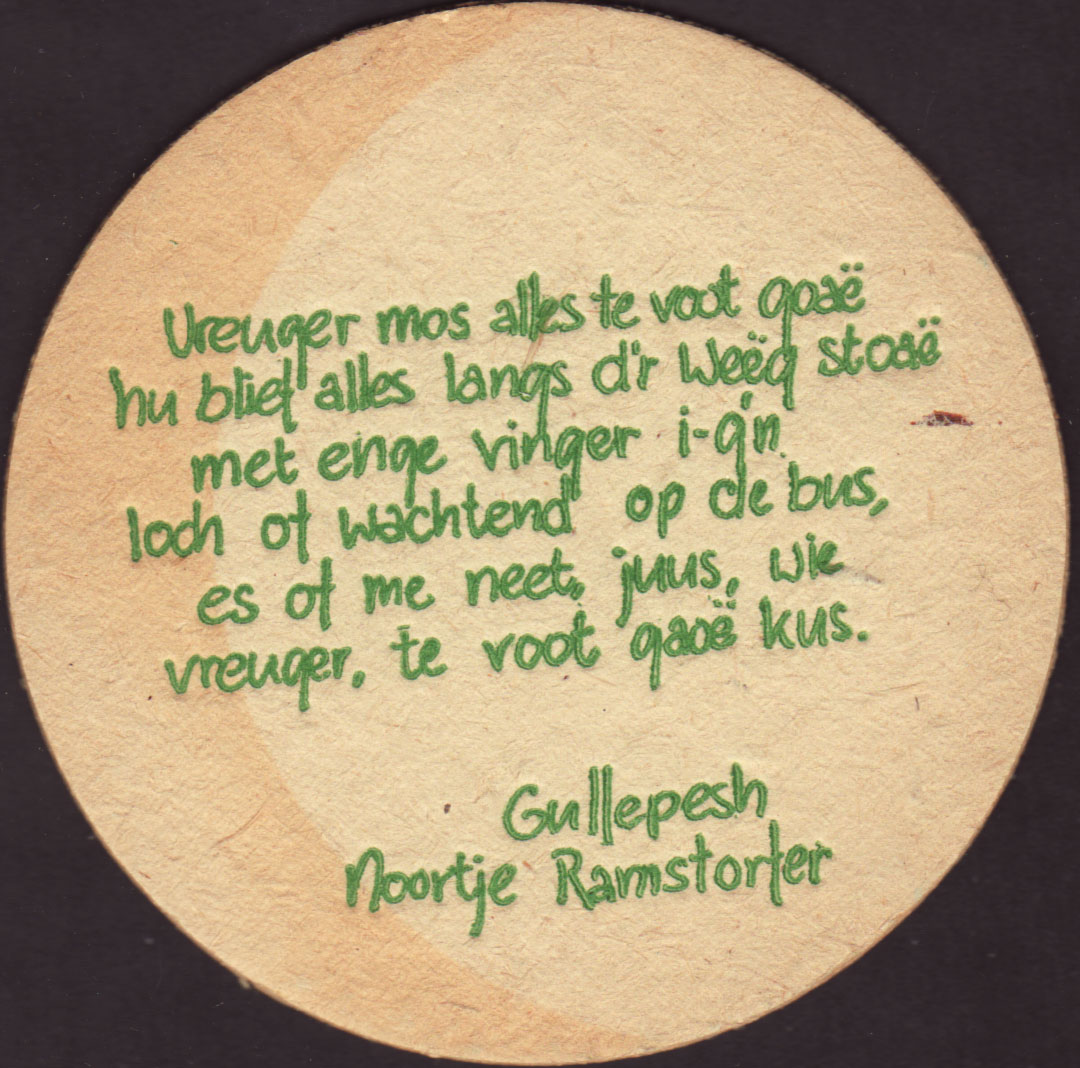 Vreuger mos alles te voot goaë
hu blief alles langs d'r Weëg stoaë
met enge vinger i-g'n
loch of wachtend op de bus,
es of me neet, juus, wie
vreuger, te voot gaoë kus.
Gullepesh
Noortje Ramstorfer